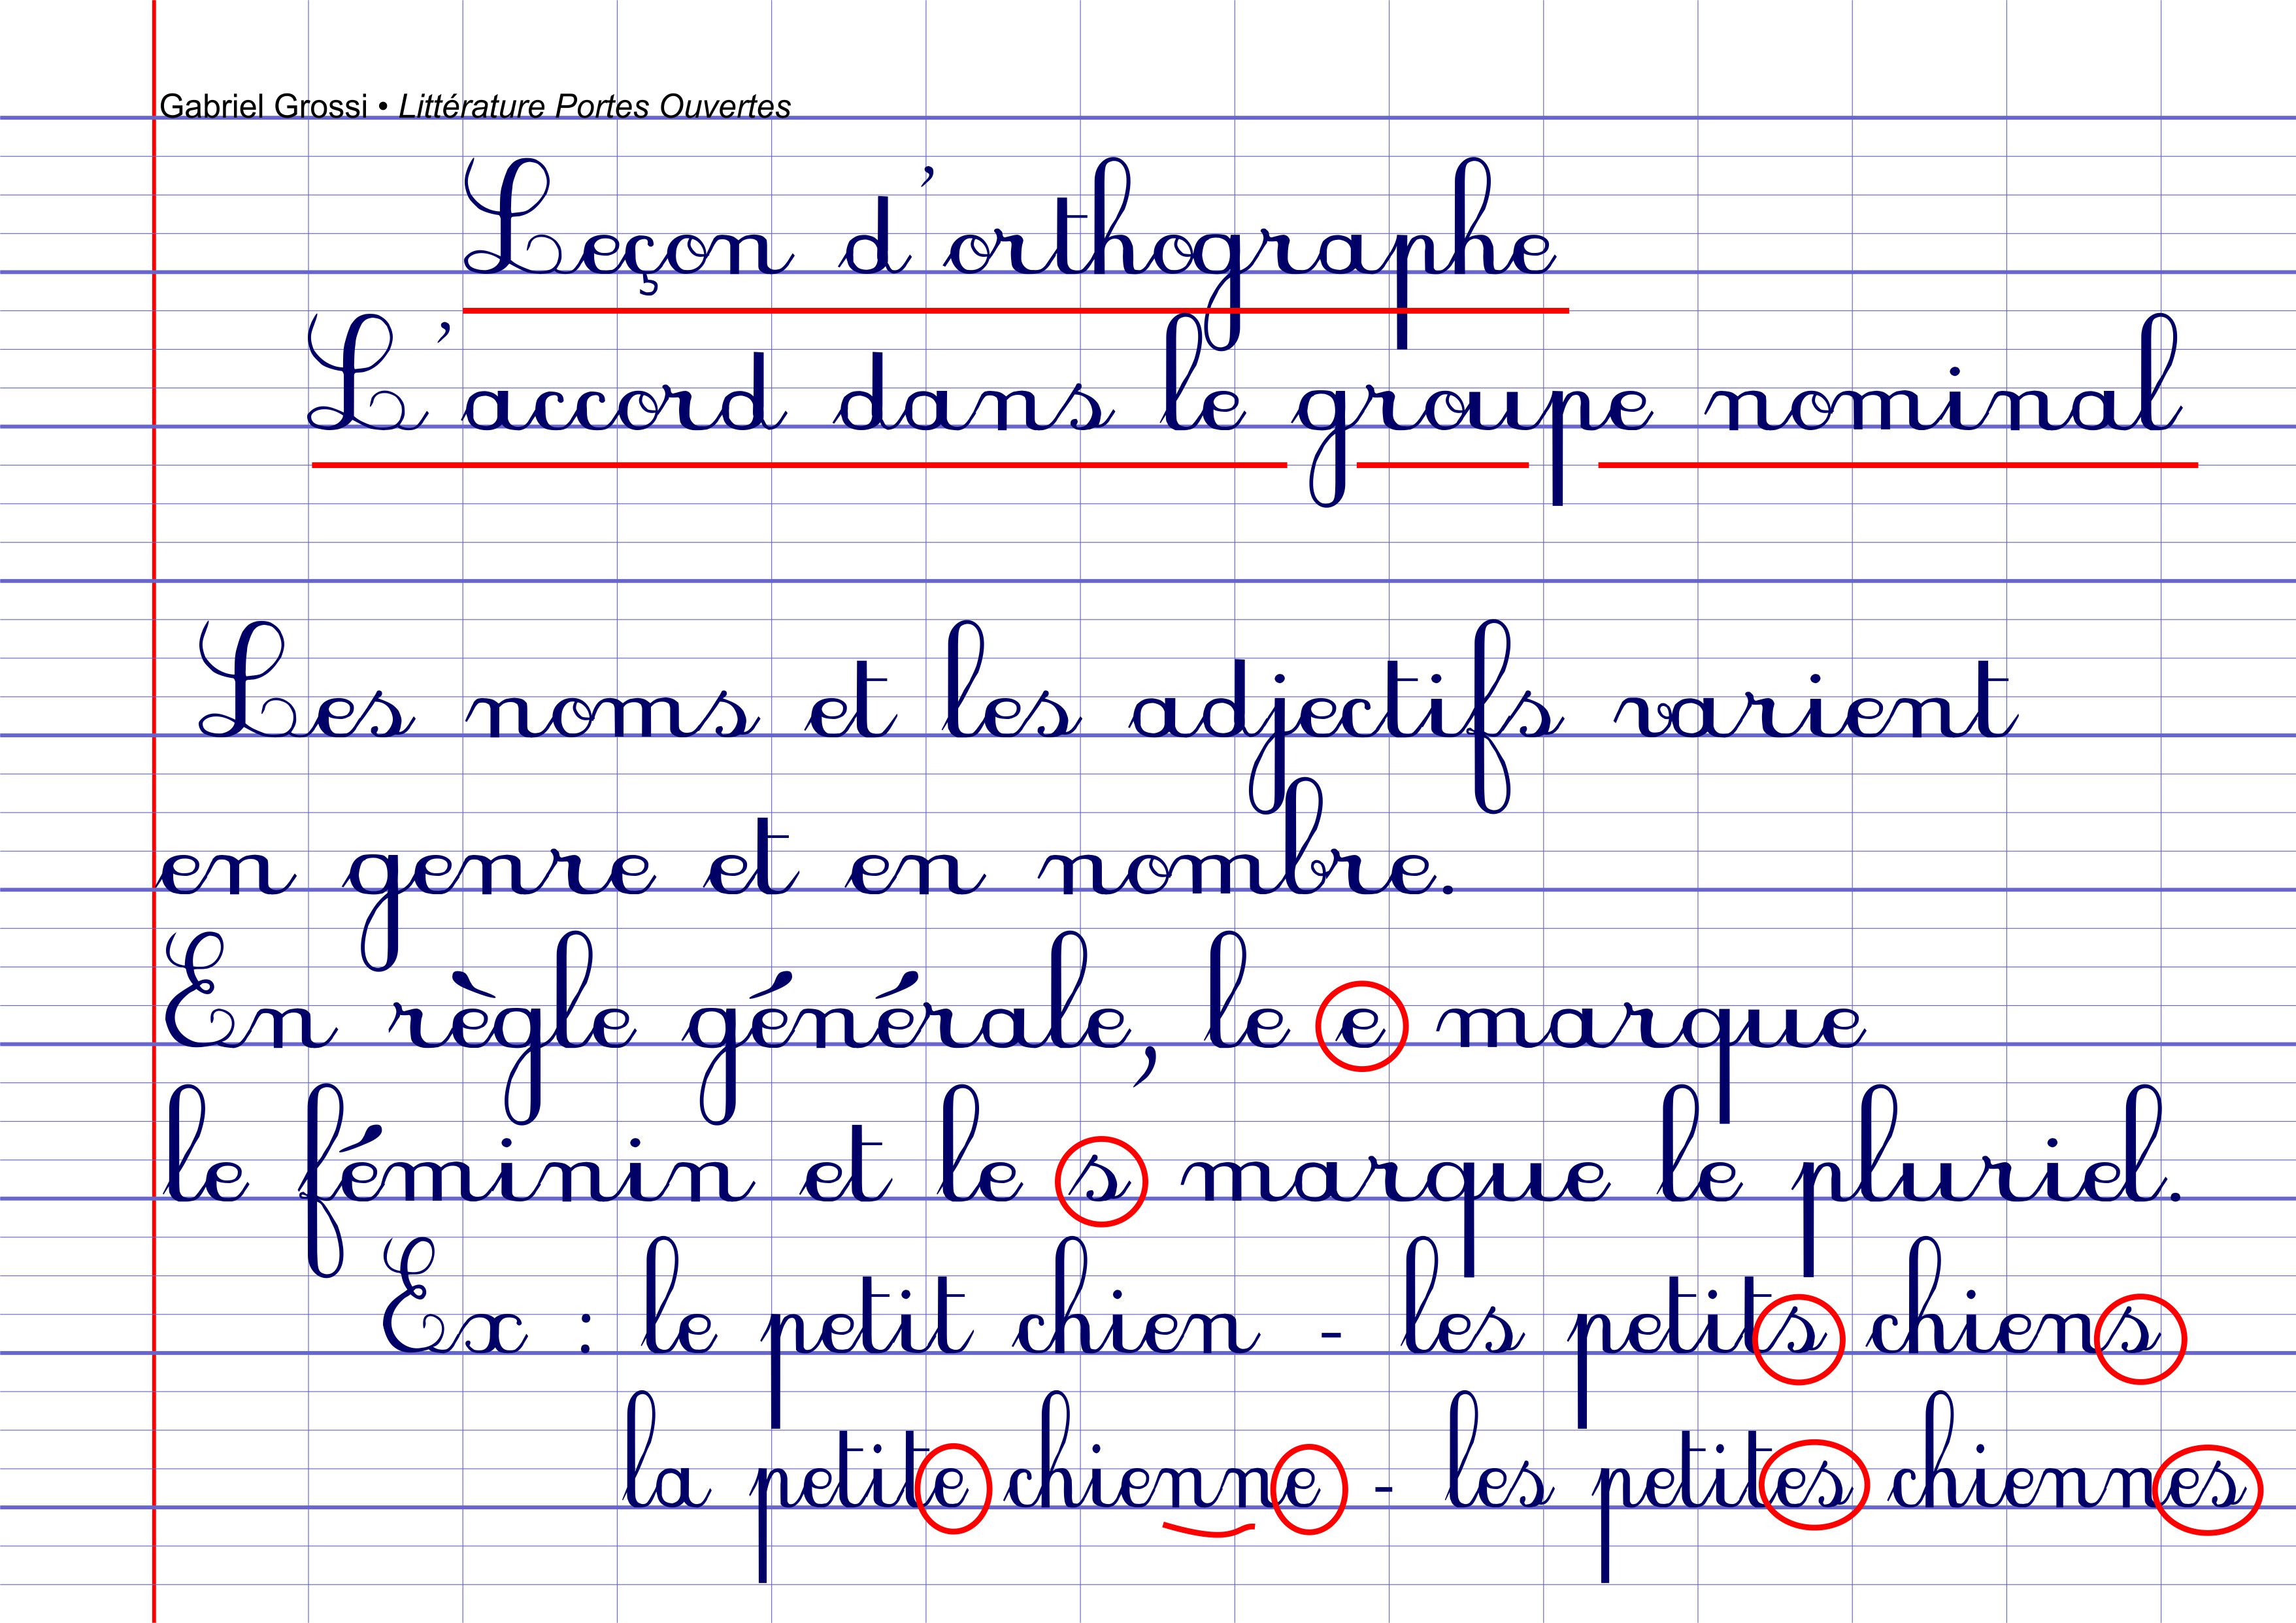 Gabriel Grossi • Littérature Portes Ouvertes
Leçon d'orthographe
L'accord dans le groupe nominal
Les noms et les adjectifs varient
en genre et en nombre.
En règle générale, le e marque
le féminin et le s marque le pluriel.
Ex : le petit chien - les petits chiens
la petite chienne - les petites chiennes